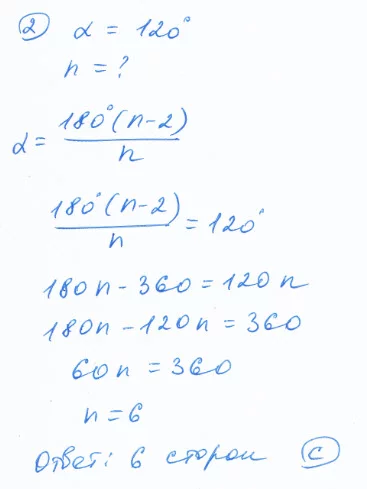 ② α = 120°
n = ?
α = 180°(n-2)/n
180°(n-2)/n = 120°
180n - 360 = 120n
180n - 120n = 360
60n = 360
n = 6
Ответ: 6 сторон Ⓒ